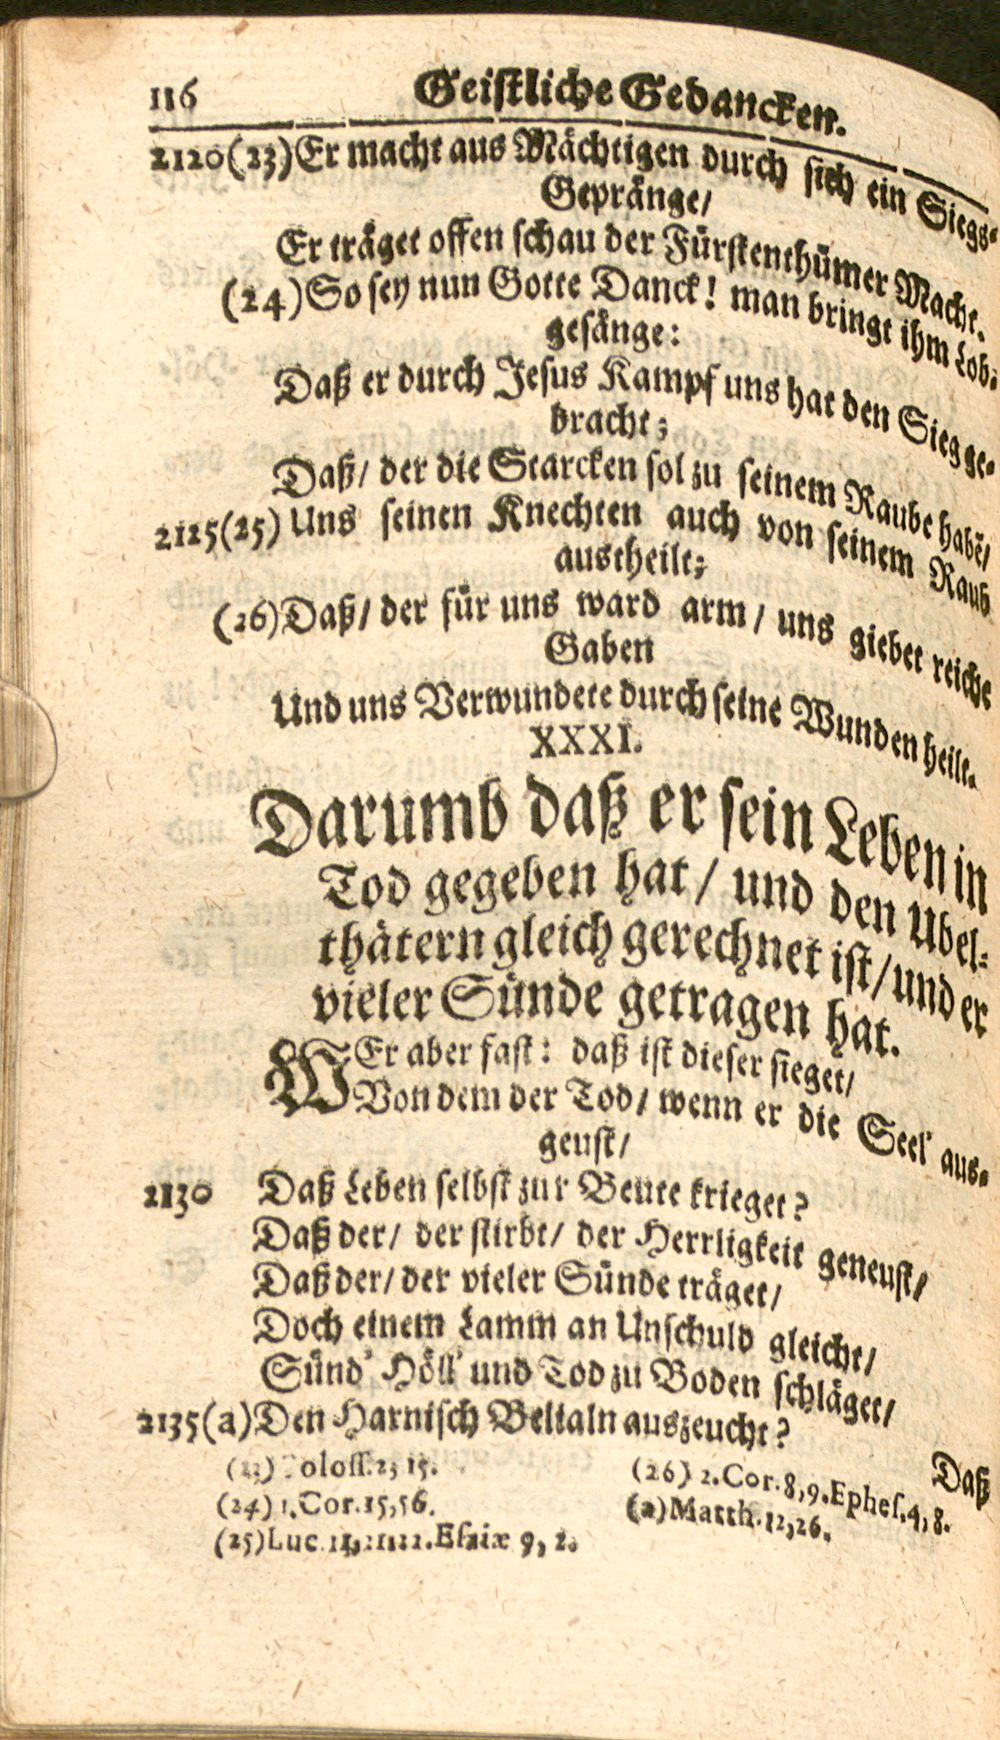 116 Geistliche Gedancken.
2120(23)Er macht aus Mächtigen durch sich ein Siegs-
Gepränge/
Er träget offen schau der Fürstenthümer Macht.
(24)So sey nun Gotte Danck! man bringt ihm Lob-
gesänge:
Daß er durch Jesus Kampf uns hat den Sieg ge-
bracht;
Daß/ der die Starcken sol zu seinem Raube habē/
2125(25) Uns seinen Knechten auch von seinem Raub
austheilt;
(26)Daß/ der für uns ward arm/ uns giebet reiche
Gaben
Und uns Verwundete durch seine Wunden heilt.
XXXI.
Darumb daß er sein Leben in
Tod gegeben hat/ und den Ubel-
thätern gleich gerechnet ist/und er
vieler Sünde getragen hat.
WEr aber fast: daß ist dieser sieget/
Von dem der Tod/ wenn er die Seel' aus-
geust/
2130 Daß Leben selbst zur Beute krieget?
Daß der/ der stirbt/ der Herrligkeit geneust/
Daß der/ der vieler Sünde träget/
Doch einem Lamm an Unschuld gleicht/
Sünd' Höll' und Tod zu Boden schläget/
2135(a)Den Harnisch Belialn auszeucht?
Daß
(23) Coloss.2, 15.
(24) 1.Cor.15,56.
(25)Luc. 11,21.22.Esaiæ 9, 2.
(26) 2.Cor.8,9.Ephes.4, 8.
(a)Matth.12,26.